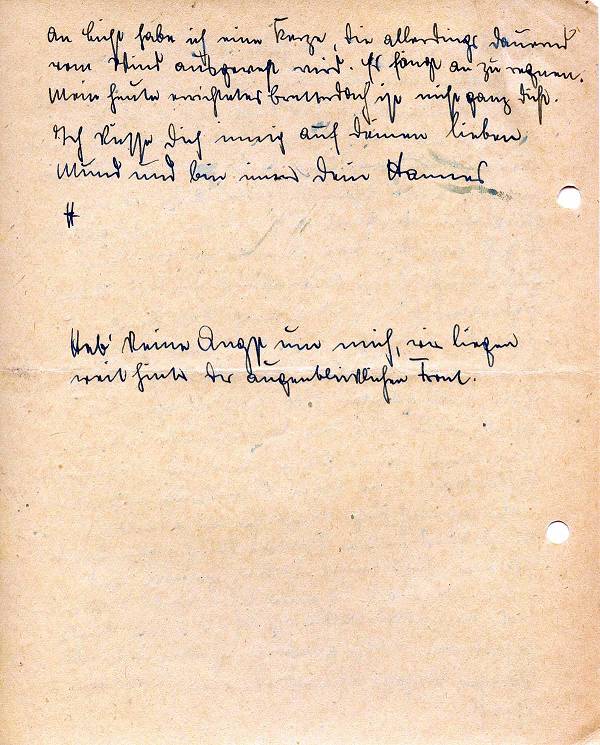 An Licht habe ich eine Kerze, die allerdings dauernd
vom Wind ausgeweht wird. Es fängt an zu regnen.
Mein heute errichtetes Bretterdach ist nicht ganz dicht.
Ich küsse Dich innig auf Deinen lieben
Mund und bin immer Dein Hannes
H
Hab' keine Angst um mich, wir liegen
weit hinter der augenblicklichen Front.